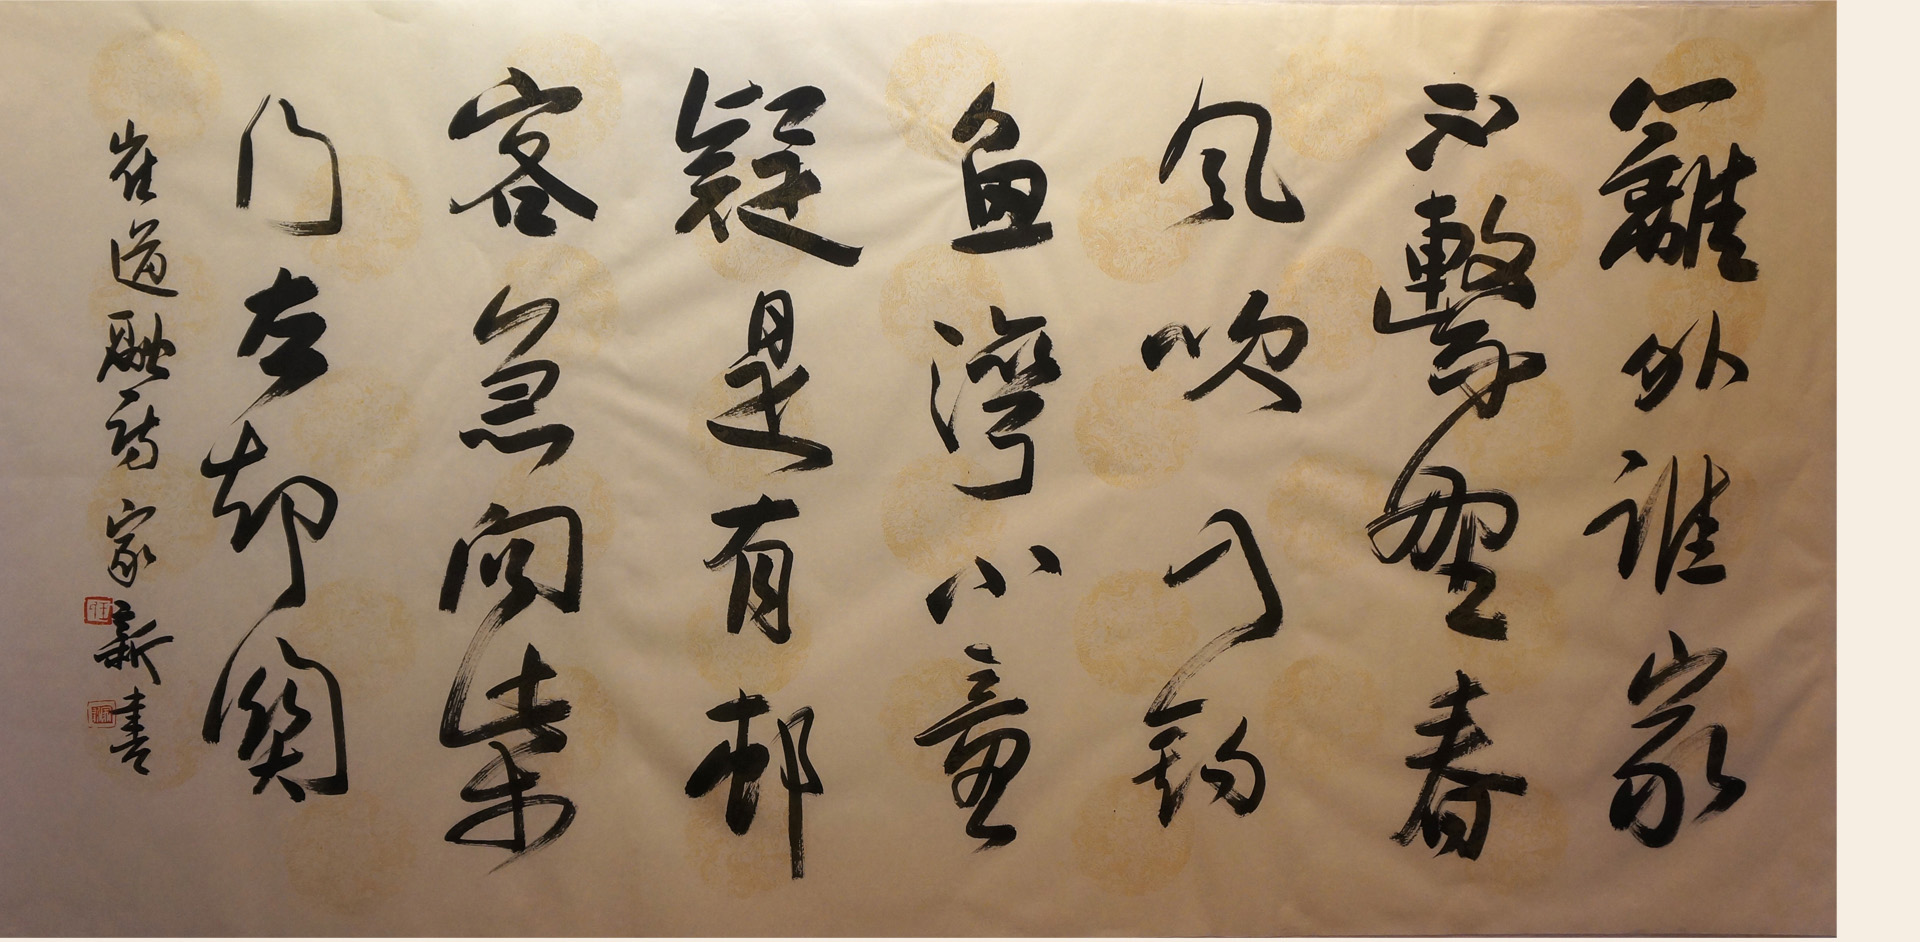 籬外誰家
不繫船春
風吹入釣
魚灣小童
疑是有邨
客急向柴
门去却關
崔道融詩 家新書